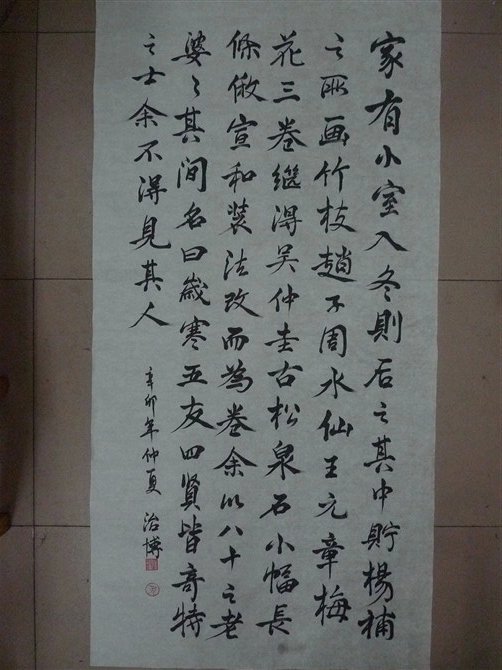 家有小室入冬則居之其中貯楊補
之所画竹枝趙子固水仙王元章梅
花三卷继得吴仲圭古松泉石小幅長
條倣宣和装法改而為卷余以八十之老
婆々其间名曰歲寒五友四賢皆奇特
之士余不得見其人
辛卯年仲夏 治博